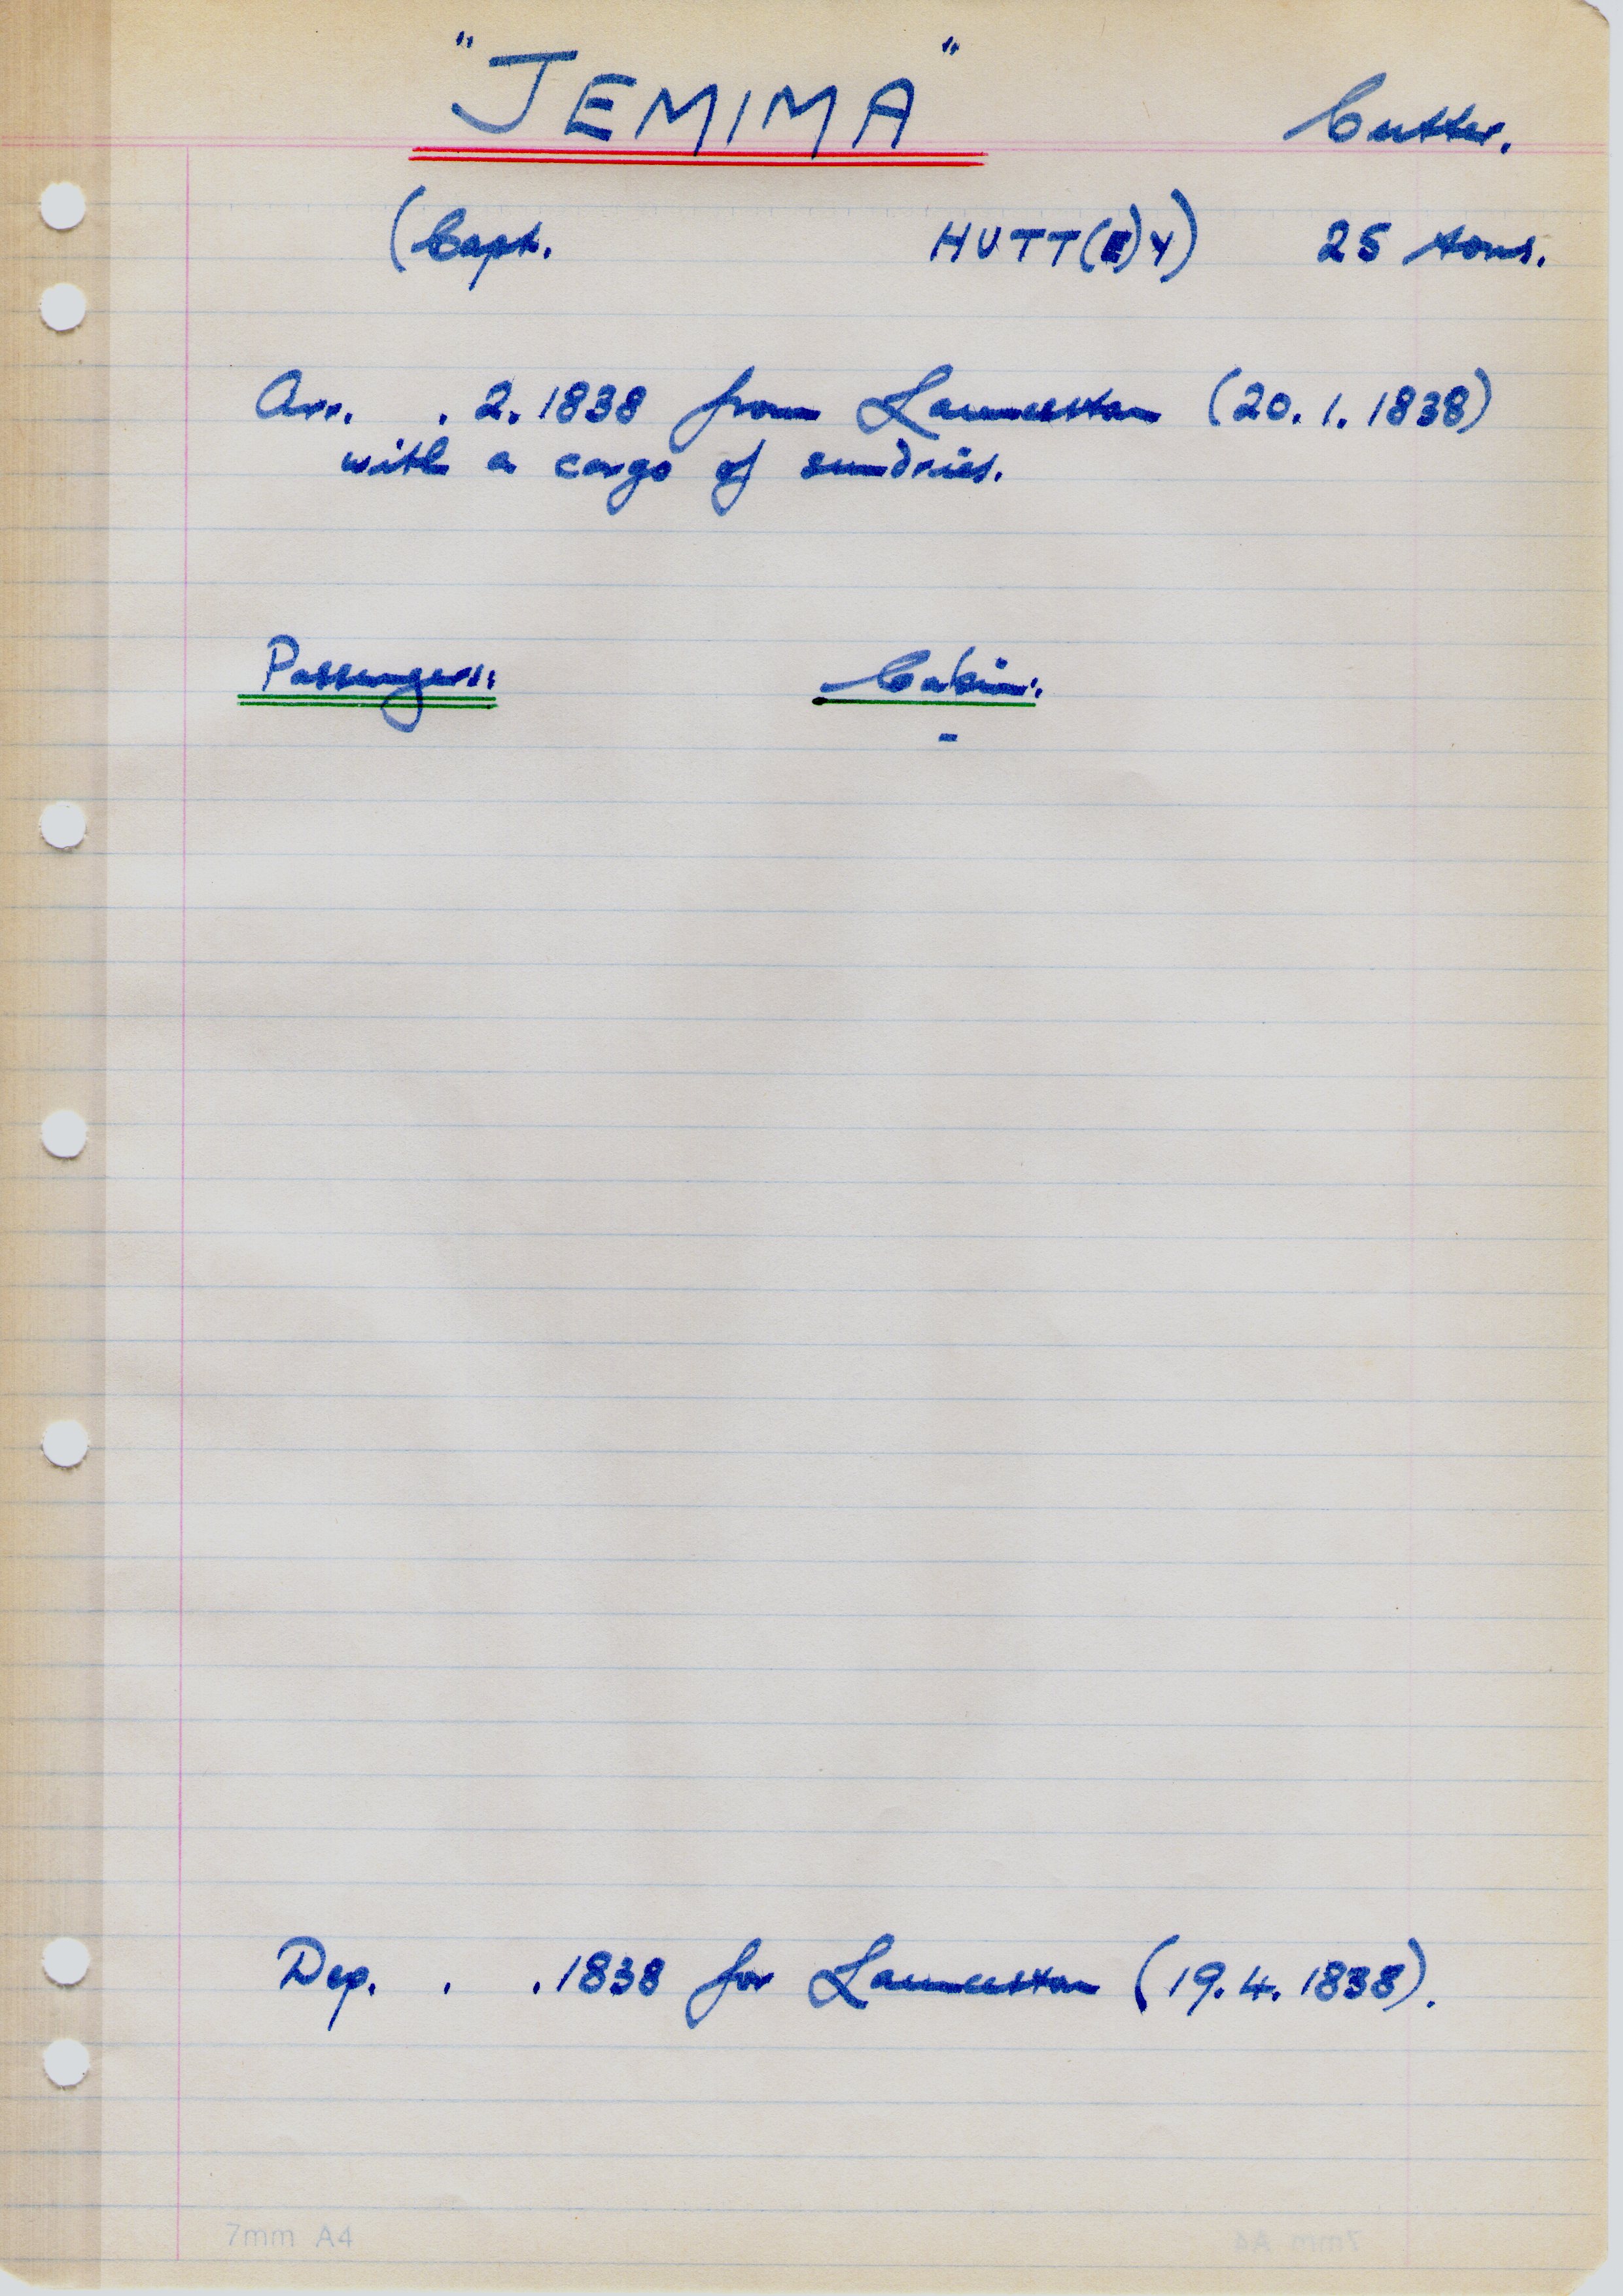 "JEMIMA" Cutter.
(Capt. HUTT(E)Y) 25 tons.
Arr. . 2. 1838 from Launceston (20. 1. 1838)
with a cargo of sundries.
Passengers: Cabin:
-
Dep. . . 1838 for Launceston (19. 4. 1838).
7mm A4